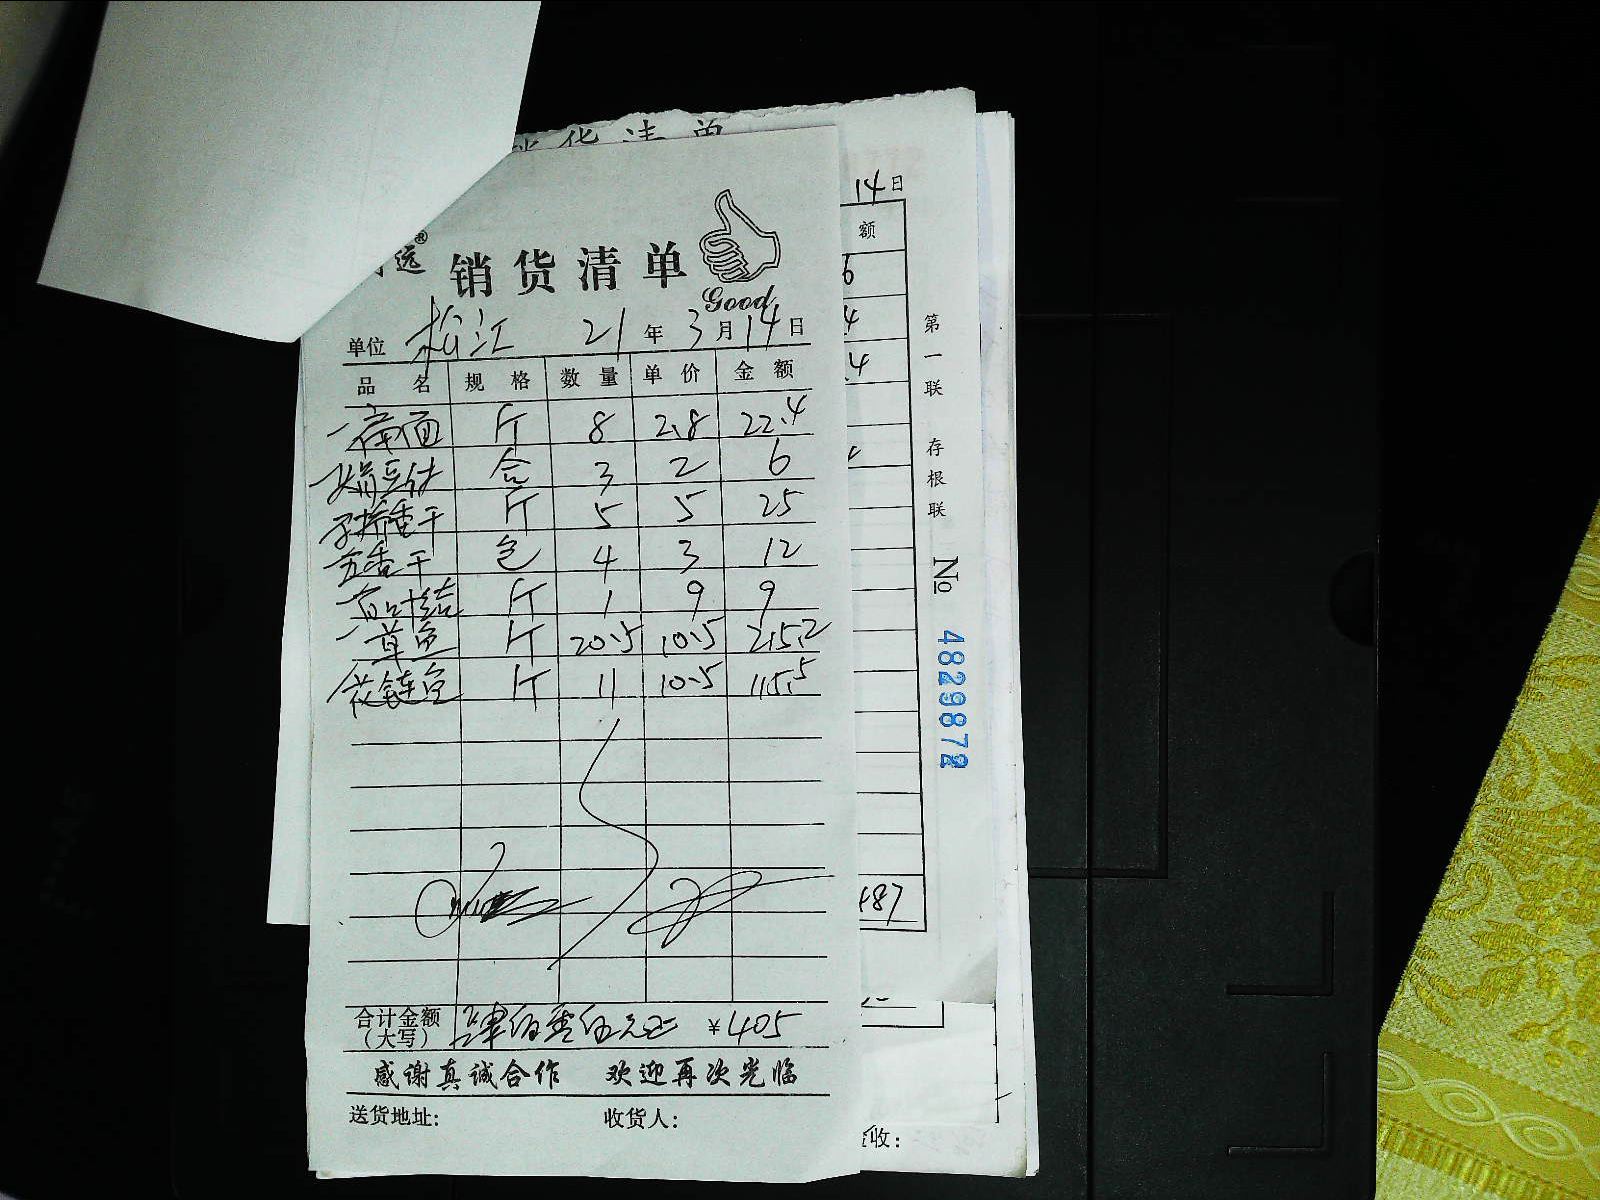 销货清单
14日
远® 销货清单
Good
额
单位 松江 21年3月14日
6
品名 规格 数量 单价 金额
面 斤 8 2.8 22.4
娟豆付 合 3 2 6
香干 斤 5 5 25
五香干 包 4 3 12
百叶结 斤 1 9 9
草鱼 斤 20.5 10.5 215.2
花链鱼 斤 11 10.5 115.5
第一联 存根联
No 4829872
487
合计金额(大写) 肆佰零伍元正 ¥405
感谢真诚合作 欢迎再次光临
送货地址: 收货人:
收: